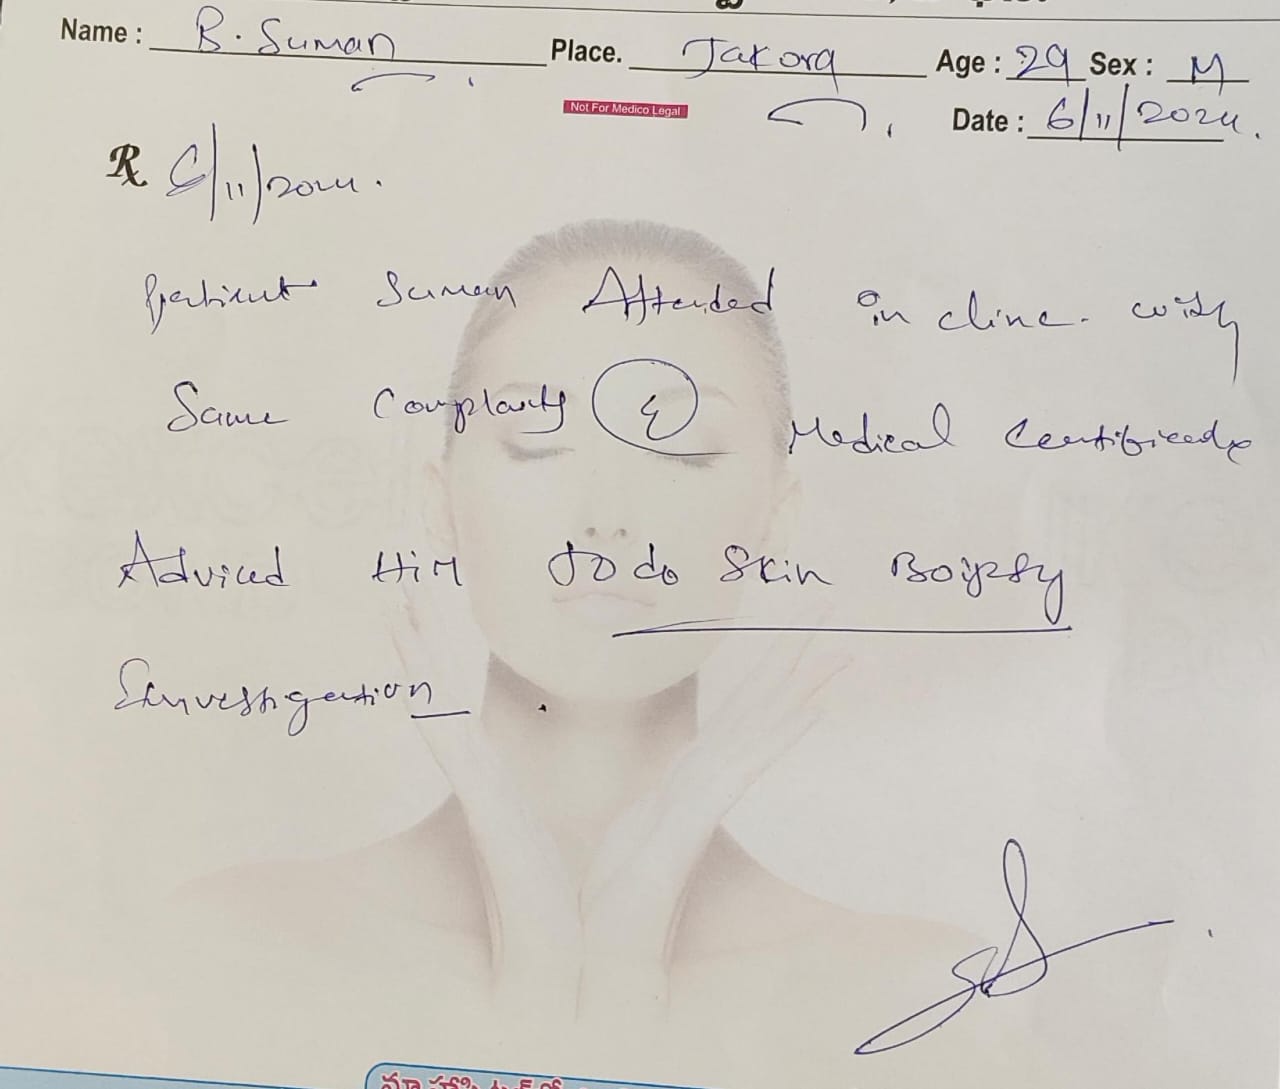 Name : B. Suman Place. Jakora Age : 29 Sex : M
Not For Medico Legal
Date : 6/11/2024.
Rx 6/11/2024.
patient Suman Attended in clinc. with
Same Complants & Medical Certificate
Adviced Him to do Skin Boipsy
Investigation.